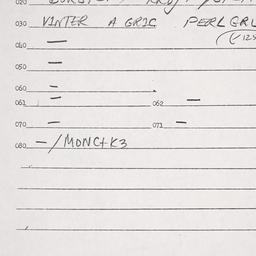 020
030 VINTER A GRIC PERLGRL
040 —
050 —
060 —
061 — 062 —
070 — 071 —
080 — /MONC+K3